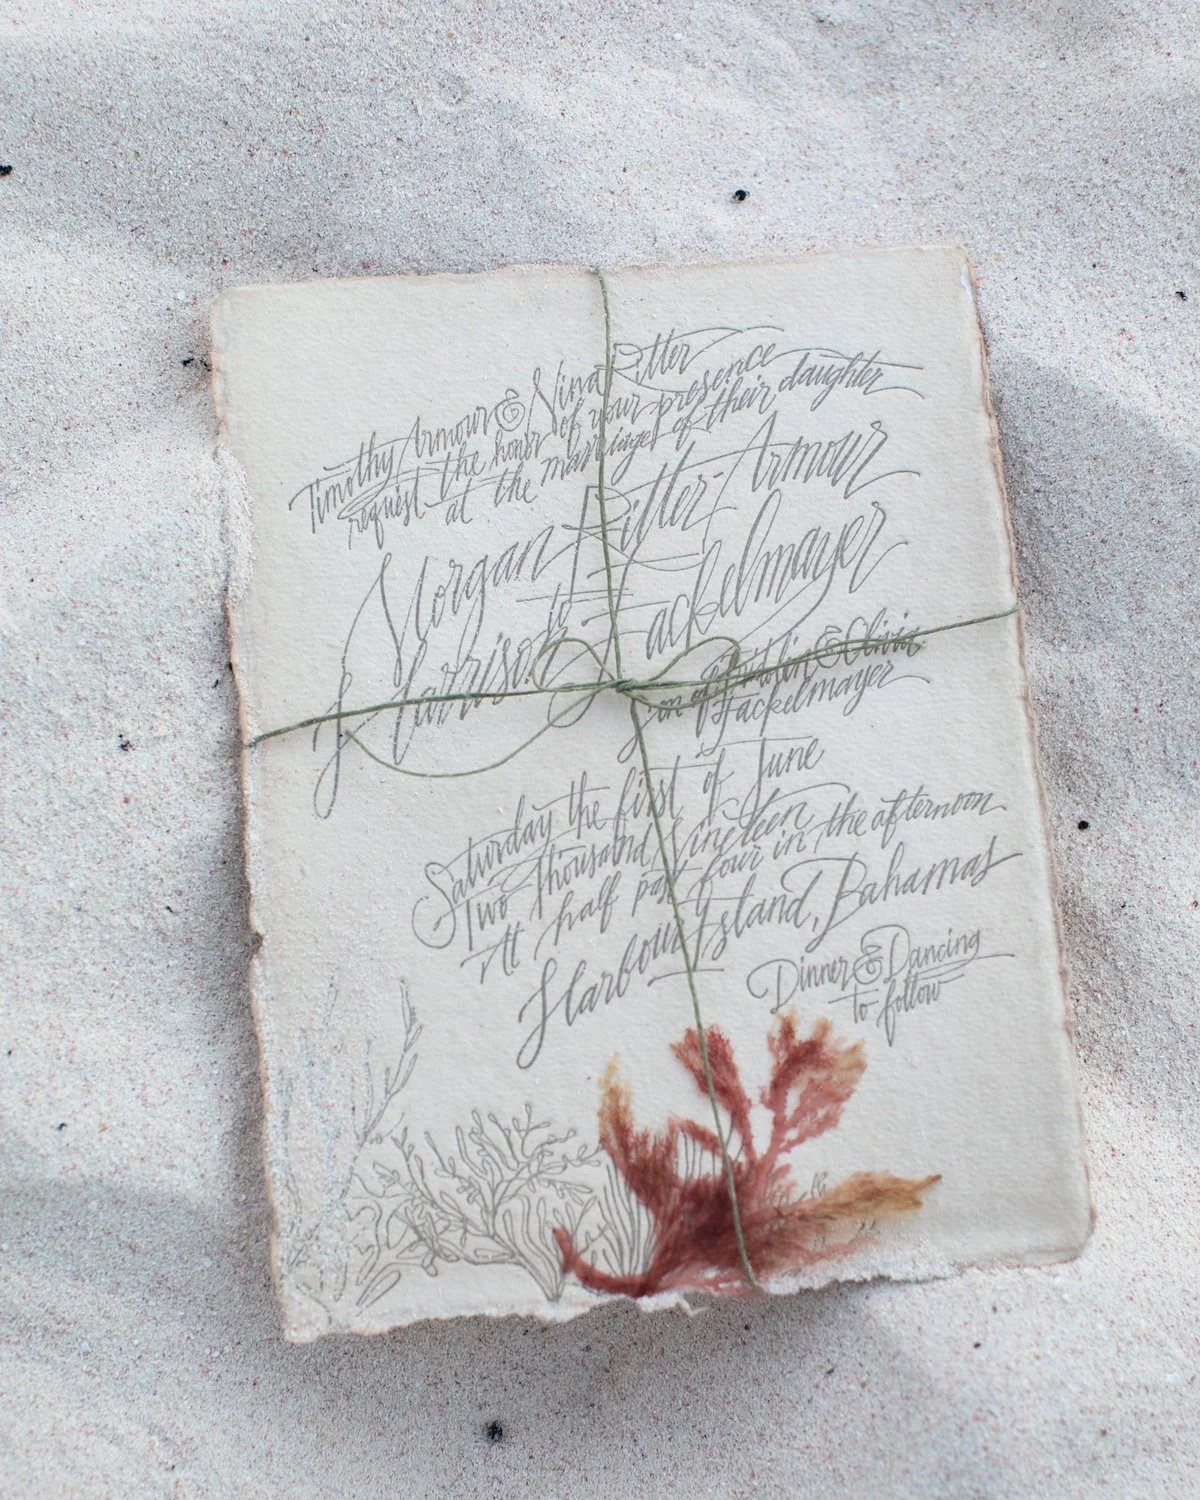 Timothy Armour & Nina Ritter
request the honor of your presence
at the marriage of their daughter
Morgan Ritter-Armour
to
Harrison Fackelmayer
son of & Olivia
Fackelmayer
Saturday the first of June
Two Thousand Nineteen
At half past four in the afternoon
Harbour Island, Bahamas
Dinner & Dancing
to follow